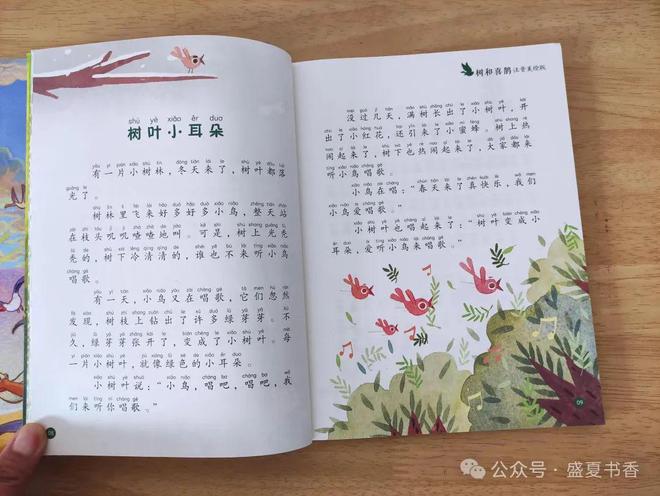 shù yè xiǎo ěr duo
树叶小耳朵
有一片小树林，冬天来了，树叶都落
光了。
树林里飞来好多好多小鸟，整天站
在枝头叽叽喳喳地叫。可是，树上光秃
秃的，树下冷清清的，谁也不来听小鸟
唱歌。
有一天，小鸟又在唱歌，它们忽然
发现，树枝上钻出了许多绿芽芽。不
久，绿芽芽张开了，变成了小树叶。每
一片小树叶，就像绿色的小耳朵。
小树叶说：“小鸟，唱吧，唱吧，我
们来听你唱歌。”
08
树和喜鹊 注音美绘版
没过几天，满树长出了小树叶，开
出了小红花，还引来了小蜜蜂。树上热
闹起来了，树下也热闹起来了，大家都来
听小鸟唱歌。
小鸟在唱：“春天来了真快乐，我们
小鸟爱唱歌。”
小树叶也唱起来了：“树叶变成小
耳朵，爱听小鸟来唱歌。”
09
公众号·盛夏书香